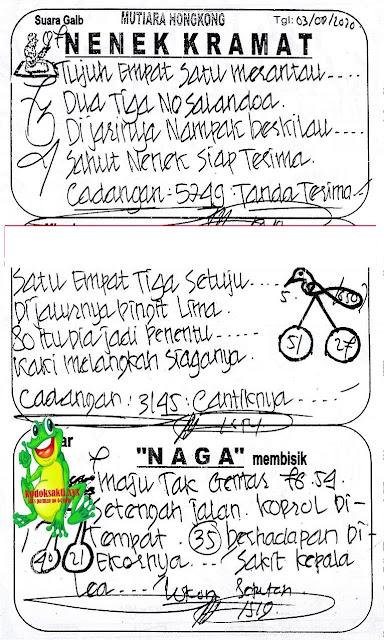 Suara Galb MUTIARA HONGKONG Tgl: 03/08/2020
NENEK KRAMAT
Tujuh Empat Satu merantau....
Dua Tiga No Salandoa.
Dijarinya Nampak berkilau....
Sahut Nenek Siap Terima.
Cadangan: 5749: Tanda Terima
Satu Empat Tiga Setuju....
Dijalurnya bingit Lima.
80 itu dia jadi Penentu.....
kaki melangkah Siaganya.
5.
51 27
Cadangan: 3145: Cantiknya......
"NAGA" membisik
kodoksakti.xyz
maju Tak Gentas 78.54
Setengah jalan. koprol Di-
tempat. 35 berhadapan Di-
40 21 Ekornya... Sakit kepala
Lea....